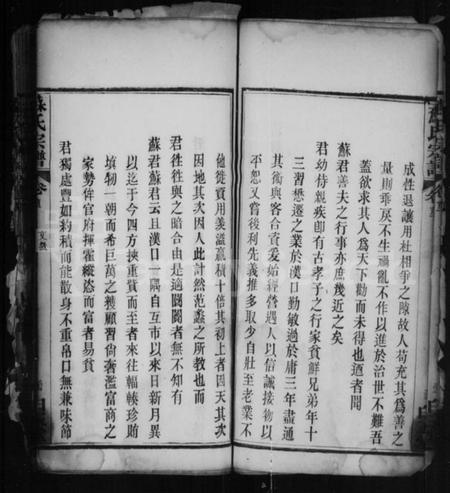 成性退讓用杜相爭之隙故人苟充其為善之
量則乖戾不生禍亂不作以進於治世不難吾
蓋欲求其人為天下勸而未得也迺者聞
蘇君善夫之行事亦庶幾近之矣
君幼侍親疾卽有古孝子之行家貧鮮兄弟年十
三習懋遷之業於漢口勤敏過於庸三年盡通
其術與客合資爰始經營遇人以信誠接物以
不恕又嘗後利先義推多取少自壯至老業不
他徙貲用羨溢贏積十倍其初上者因天其次
因地其次因人此計然范蠡之所教也而
君徃徃與之暗合由是適闤闠者無不知有
蘇君蘇君云且漢口一隅自互市以來日新月異
以迄于今四方挾重貲而至者來往輻輳珍賄
填牣一朝而希巨萬之穫顧習尙奢濫富商之
家勢侔官府揮霍縱恣而富者易貧
君獨處豐如約積而能散身不重帛口無兼味節
蘇氏宗譜
卷